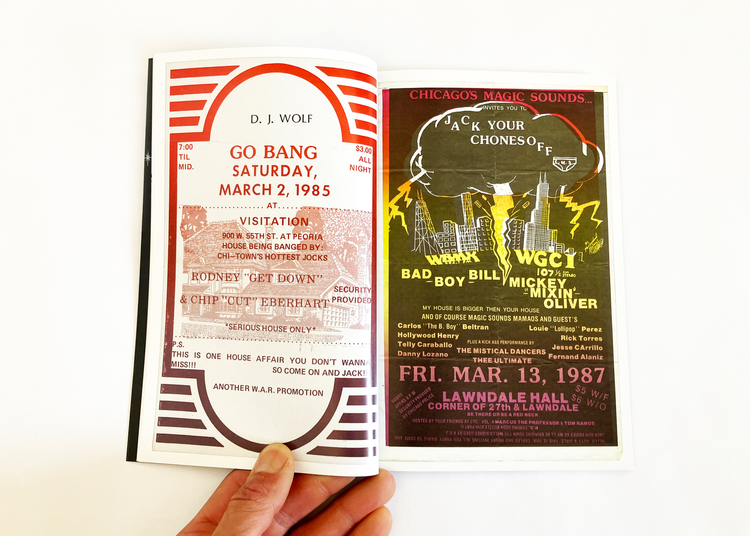 D. J. WOLF
7:00
TIL
MID.
$3.00
ALL
NIGHT
GO BANG
SATURDAY,
MARCH 2, 1985
AT
VISITATION
900 W. 55TH. ST. AT PEORIA
HOUSE BEING BANGED BY:
CHI-TOWN'S HOTTEST JOCKS
RODNEY "GET DOWN"
& CHIP "CUT" EBERHART
SECURITY
PROVIDED
"SERIOUS HOUSE ONLY"
P.S.
THIS IS ONE HOUSE AFFAIR YOU DON'T WANN
MISS!!! SO COME ON AND JACK!
ANOTHER W.A.R. PROMOTION
CHICAGO'S MAGIC SOUNDS...
INVITES YOU TO
JACK YOUR
CHONES OFF
WGCI
107½
BAD
BOY
BILL
MICKEY
"MIXIN"
OLIVER
MY HOUSE IS BIGGER THEN YOUR HOUSE
AND OF COURSE MAGIC SOUNDS MAMAOS AND GUEST'S
Carlos "The B. Boy" Beltran
Hollywood Henry
Telly Caraballo
Danny Lozano
Louie "Lollipop" Perez
Rick Torres
Jesse CArrillo
Fernand Alaniz
PLUS A KICK ASS PERFORMANCE BY
THE MISTICAL DANCERS
THEE ULTIMATE
FRI. MAR. 13, 1987
$5 W/F
$6 W/O
LAWNDALE HALL
CORNER OF 27th & LAWNDALE
BE THERE OR BE A RED NECK